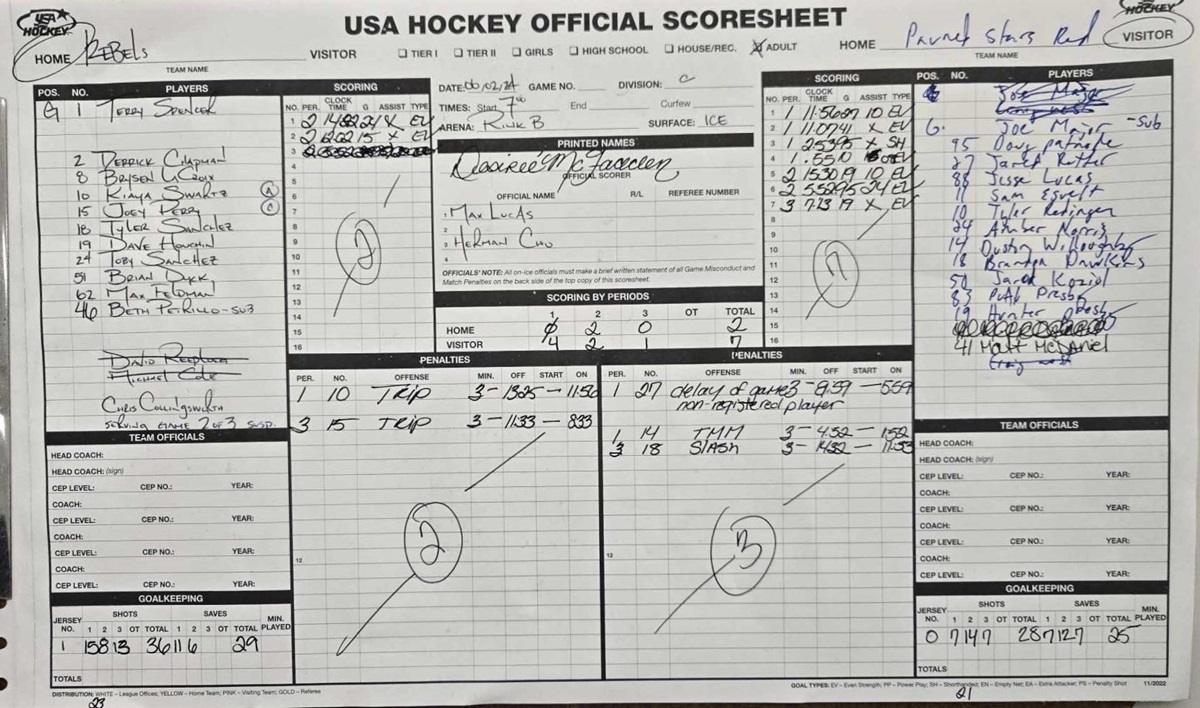 USA HOCKEY
USA HOCKEY OFFICIAL SCORESHEET
HOCKEY
HOME REBELS
TEAM NAME
VISITOR
☐ TIER I ☐ TIER II ☐ GIRLS ☐ HIGH SCHOOL ☐ HOUSE/REC. ☒ ADULT
HOME
Stars Red
TEAM NAME
VISITOR
POS. NO. PLAYERS
G 1 TERRY SPENCER
2 DERRICK CHAPMAN
8 BRYSEN LACROIX
10 KIAYA SWARTZ A
15 JOEY PERRY C
18 TYLER SANCHEZ
19 DAVE HOUCHIN
24 TOBY SANCHEZ
51 BRIAN DYKK
62 MAX FELDMAN
46 BETH PETRILLO-SUB
MICHAEL COLE
CHRIS COLLINGSWORTH
SERVING GAME 2 OF 3 SUSP.
SCORING
NO. PER. CLOCK TIME G ASSIST TYPE
1 2 1482 24 X EV
2 2 6:20 15 X EV
3
4
5
6
7
8
9
10
11
12
13
14
15
16
2
DATE: 06/02/24 GAME NO. DIVISION: C
TIMES: Start 7:00 End Curfew
ARENA: RINK B SURFACE: ICE
PRINTED NAMES
OFFICIAL SCORER
OFFICIAL NAME R/L REFEREE NUMBER
1 MAX LUCAS
2
3 HERMAN CHO
4
OFFICIALS' NOTE: All on-ice officials must make a brief written statement of all Game Misconduct and
Match Penalties on the back side of the top copy of this scoresheet.
SCORING BY PERIODS
1 2 3 OT TOTAL
HOME 0 2 0 2
VISITOR 4 2 1 7
SCORING
NO. PER. CLOCK TIME G ASSIST TYPE
1 1 11:56 27 10 EV
2 1 11:07 41 X EV
3 1 2:53 95 X SH
4 1 :55 10 EV
5 2 1530 19 10 EV
6 2 5:52 95 24 EV
7 3 7:23 19 X EV
8
9
10
11
12
13
14
15
16
7
POS. NO. PLAYERS
Joe Major
G. Joe Major -sub
95 Doug
27 Jared Rother
88 Jesse Lucas
11 Sam Esvelt
10 Tyler Redinger
24 Amber Norris
14 Dustin Willoughby
18 Brandon Dawkins
50 Jared Koziol
83 Presby
19 Hunter
41 Matt McDaniel
Craig West
PENALTIES
PER. NO. OFFENSE MIN. OFF START ON
1 10 TRIP 3 - 1325 - 11:56
3 15 TRIP 3 - 11:33 - 833
12
2
PENALTIES
PER. NO. OFFENSE MIN. OFF START ON
1 27 delay of game 3 - 8:59 - 559
non-registered player
1 14 TMM 3 - 4:52 - 1:52
3 18 SLASH 3 - 1432 - 11:33
12
3
TEAM OFFICIALS
HEAD COACH:
HEAD COACH: (sign)
CEP LEVEL: CEP NO.: YEAR:
COACH:
CEP LEVEL: CEP NO.: YEAR:
COACH:
CEP LEVEL: CEP NO.: YEAR:
COACH:
CEP LEVEL: CEP NO.: YEAR:
GOALKEEPING
SHOTS SAVES
JERSEY NO. 1 2 3 OT TOTAL 1 2 3 OT TOTAL MIN. PLAYED
1 15 8 13 36 11 6 29
TOTALS
TEAM OFFICIALS
HEAD COACH:
HEAD COACH: (sign)
CEP LEVEL: CEP NO.: YEAR:
COACH:
CEP LEVEL: CEP NO.: YEAR:
COACH:
CEP LEVEL: CEP NO.: YEAR:
COACH:
CEP LEVEL: CEP NO.: YEAR:
GOALKEEPING
SHOTS SAVES
JERSEY NO. 1 2 3 OT TOTAL 1 2 3 OT TOTAL MIN. PLAYED
0 7 14 7 28 7 12 7 25
TOTALS
DISTRIBUTION: WHITE – League Offices; YELLOW – Home Team; PINK – Visiting Team; GOLD – Referee
GOAL TYPES: EV – Even Strength; PP – Power Play; SH – Shorthanded; EN – Empty Net; EA – Extra Attacker; PS – Penalty Shot 11/2022
23
21